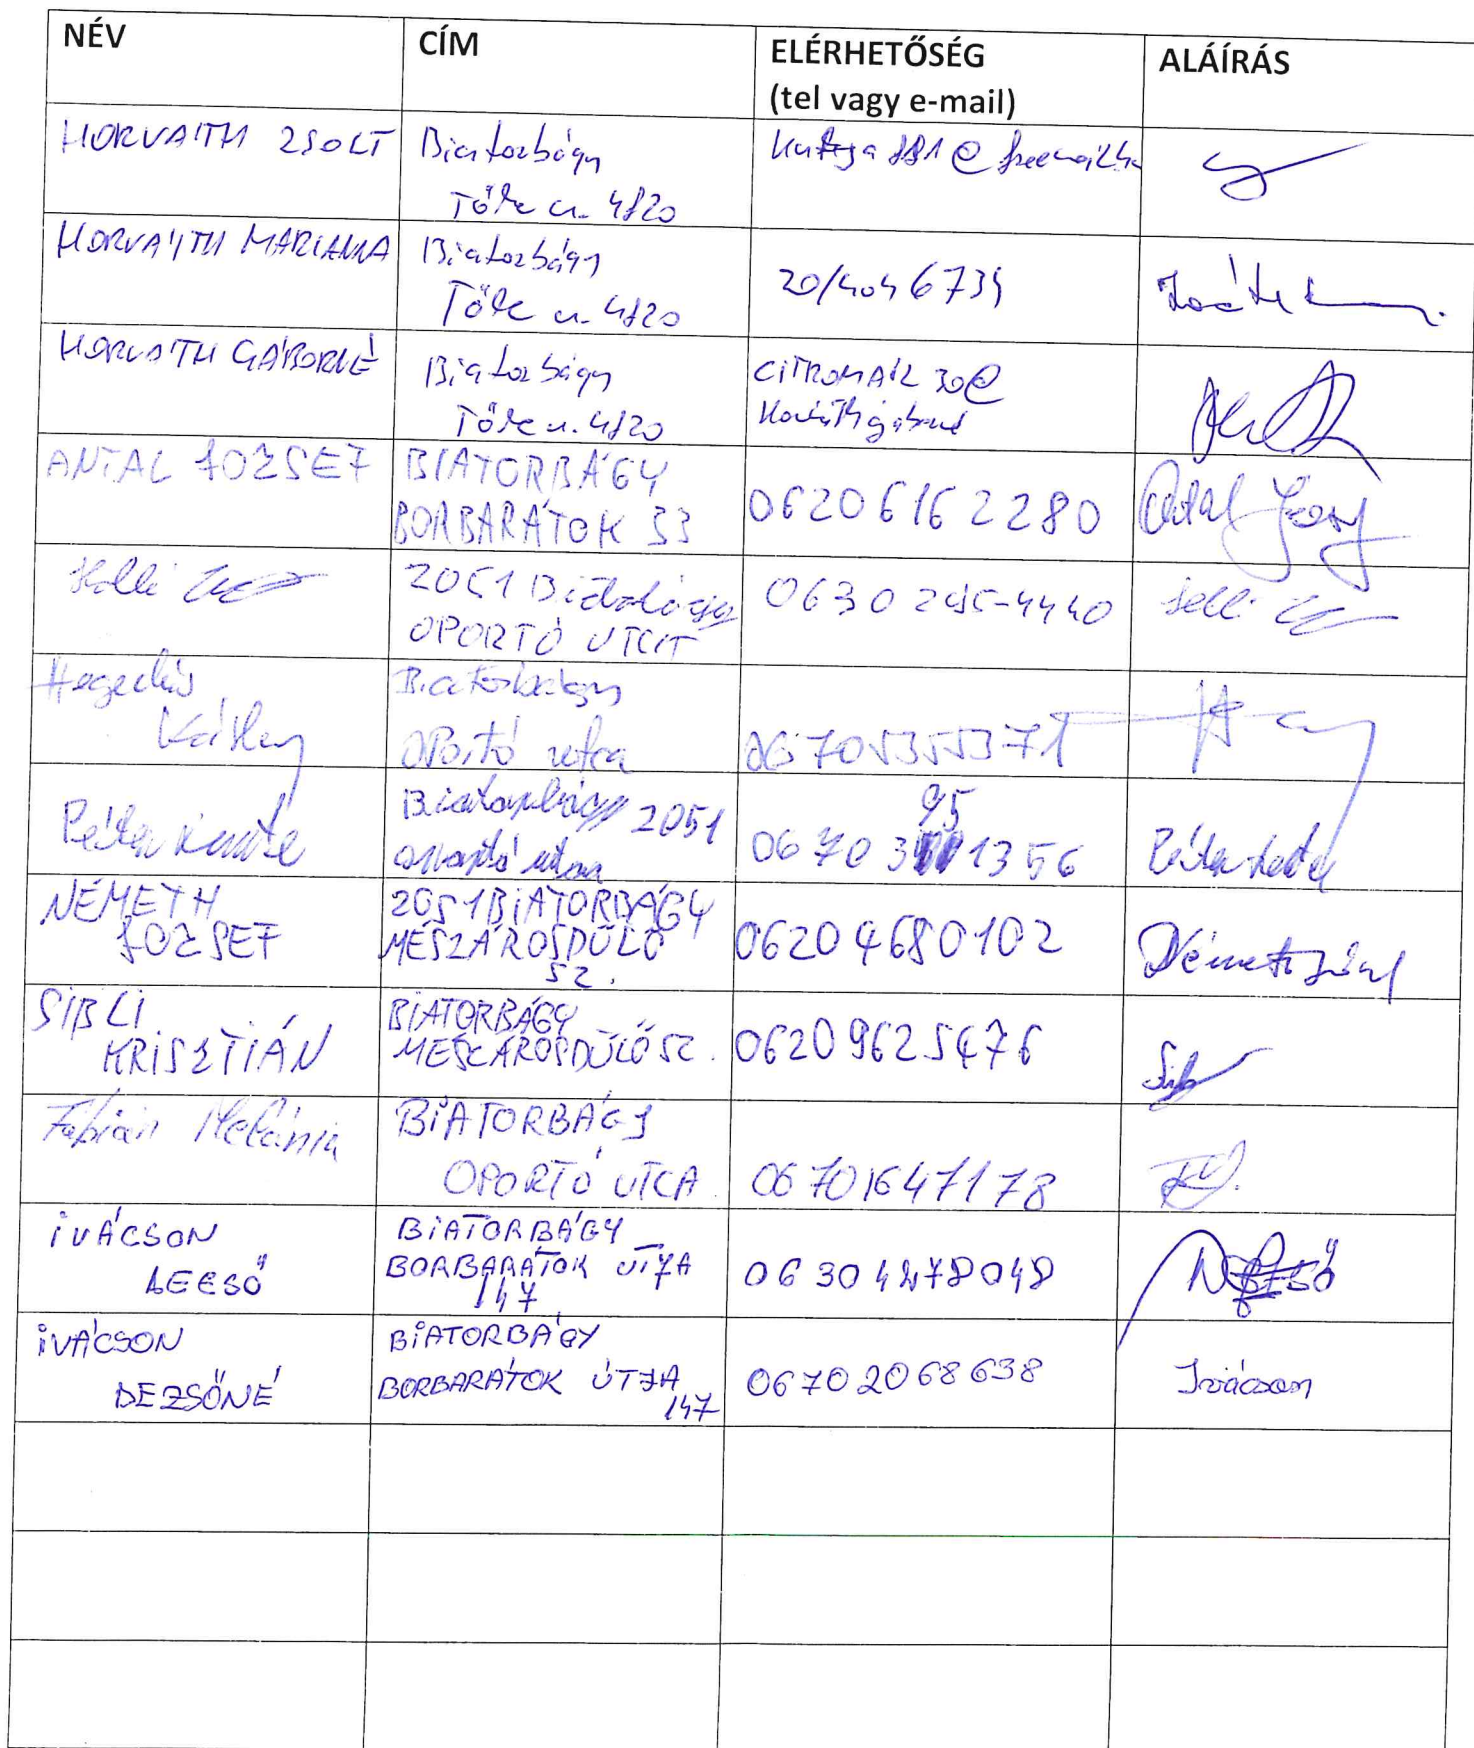 NÉV
CÍM
ELÉRHETŐSÉG
(tel vagy e-mail)
ALÁÍRÁS
HORVÁTH ZSOLT
Biatorbágy
Tőke u. 4820
HORVÁTH MARIANNA
Biatorbágy
Tőke u. 4820
20/404 6734
HORVÁTH GÁBORNÉ
Biatorbágy
Tőke u. 4820
CITROMAIL 30@
ANTAL JOZSEF
BIATORBÁGY
BORBARÁTOK 33
06206162280
Antal
2051 Biatorbágy
OPORTÓ UTCA
0630
Hegedűs
Biatorbágy
Oportó utca
06705355371
Biatorbágy 2051
oportó utca
95
06 70 3 1356
NÉMETH
JOZSEF
2051 BIATORBÁGY
MÉSZÁROSDŰLŐ
52.
06204680102
Németh
SIBLI
KRISZTIÁN
BIATORBÁGY
MÉSZÁROSDŰLŐ 52.
06209625476
Fábián Melánia
BIATORBÁGY
OPORTÓ UTCA
06701647178
IVÁCSON
BIATORBÁGY
BORBARÁTOK ÚTJA
147
IVÁCSON
DEZSŐNÉ
BIATORBÁGY
BORBARÁTOK ÚTJA
147
06702068638
Ivácson